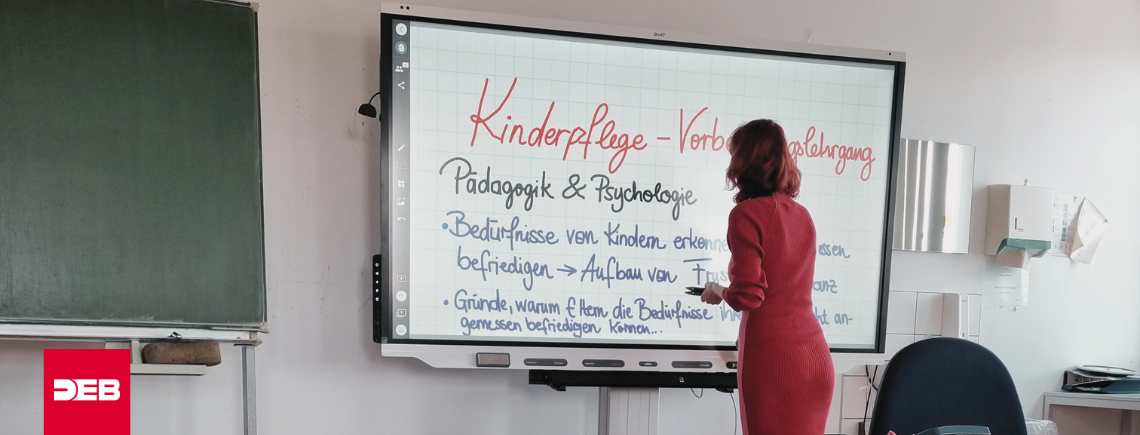 SMART
Kinderpflege - Vorbe gslehrgang
Pädagogik & Psychologie
• Bedürfnisse von Kindern erkenne essen
befriedigen → Aufbau von Frus anz
• Gründe, warum Eltern die Bedürfnisse ihr ht an-
gemessen befriedigen können...
DEB